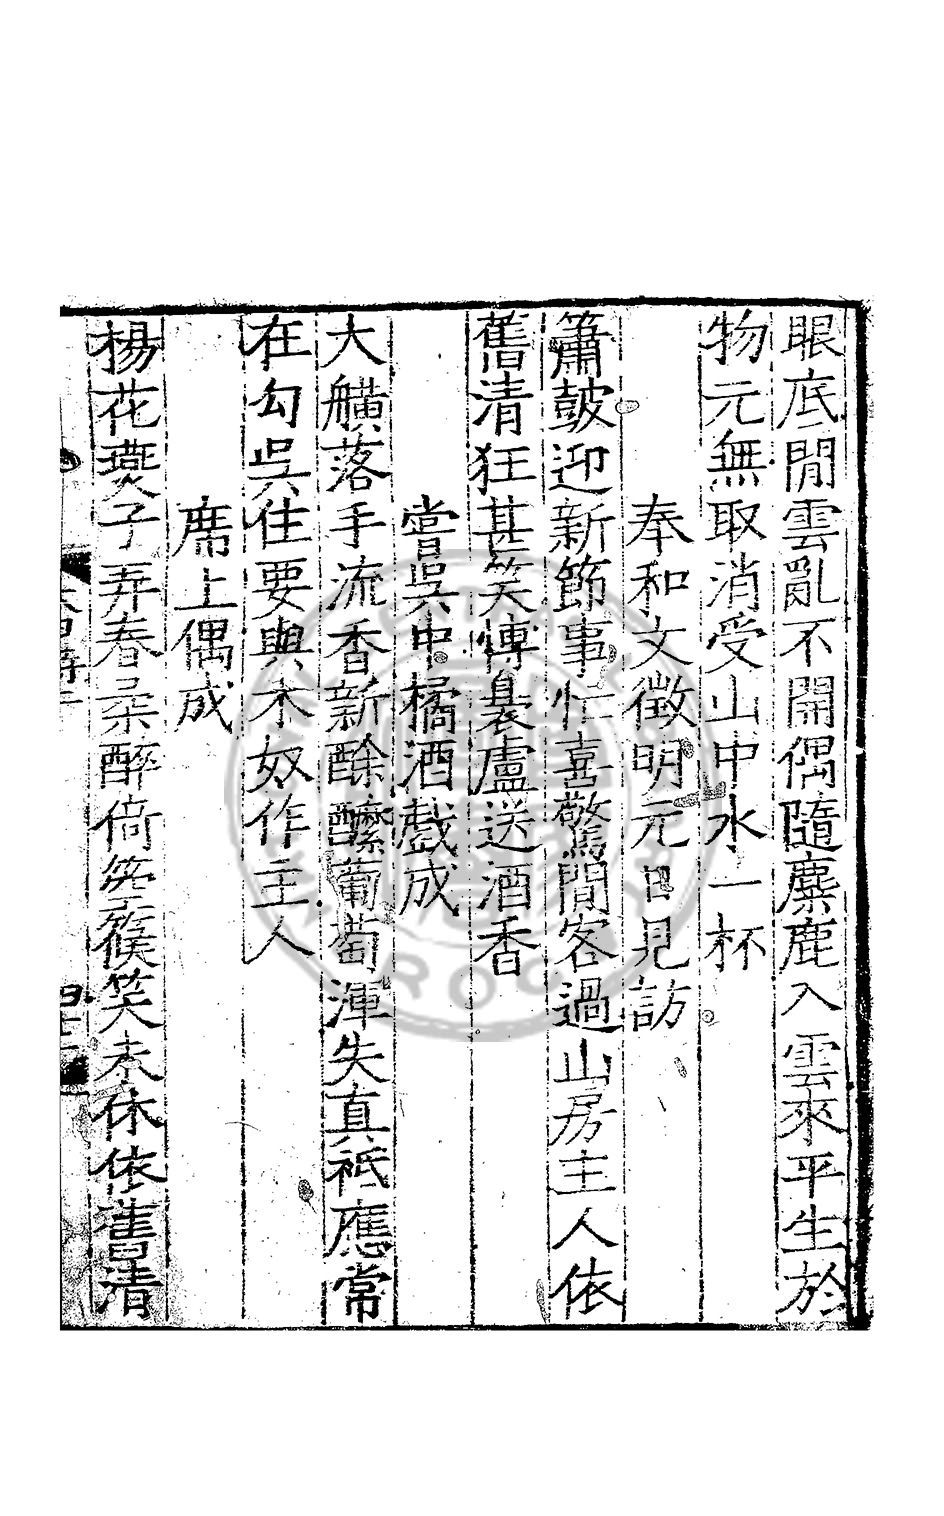 眼底閒雲亂不開偶隨麋鹿入雲來平生於
物元無取消受山中水一杯
奉和文徵明元日見訪
簫鼓迎新節事忙喜驚閒客過山房主人依
舊清狂甚笑博裊盧送酒香
嘗吳中橘酒戲成
大觥落手流香新酴醿蔔萄渾失真秪應常
在勾吳住要與木奴作主人
席上偶成
楊花燕子弄春柔醉倚箜篌笑未休依舊清